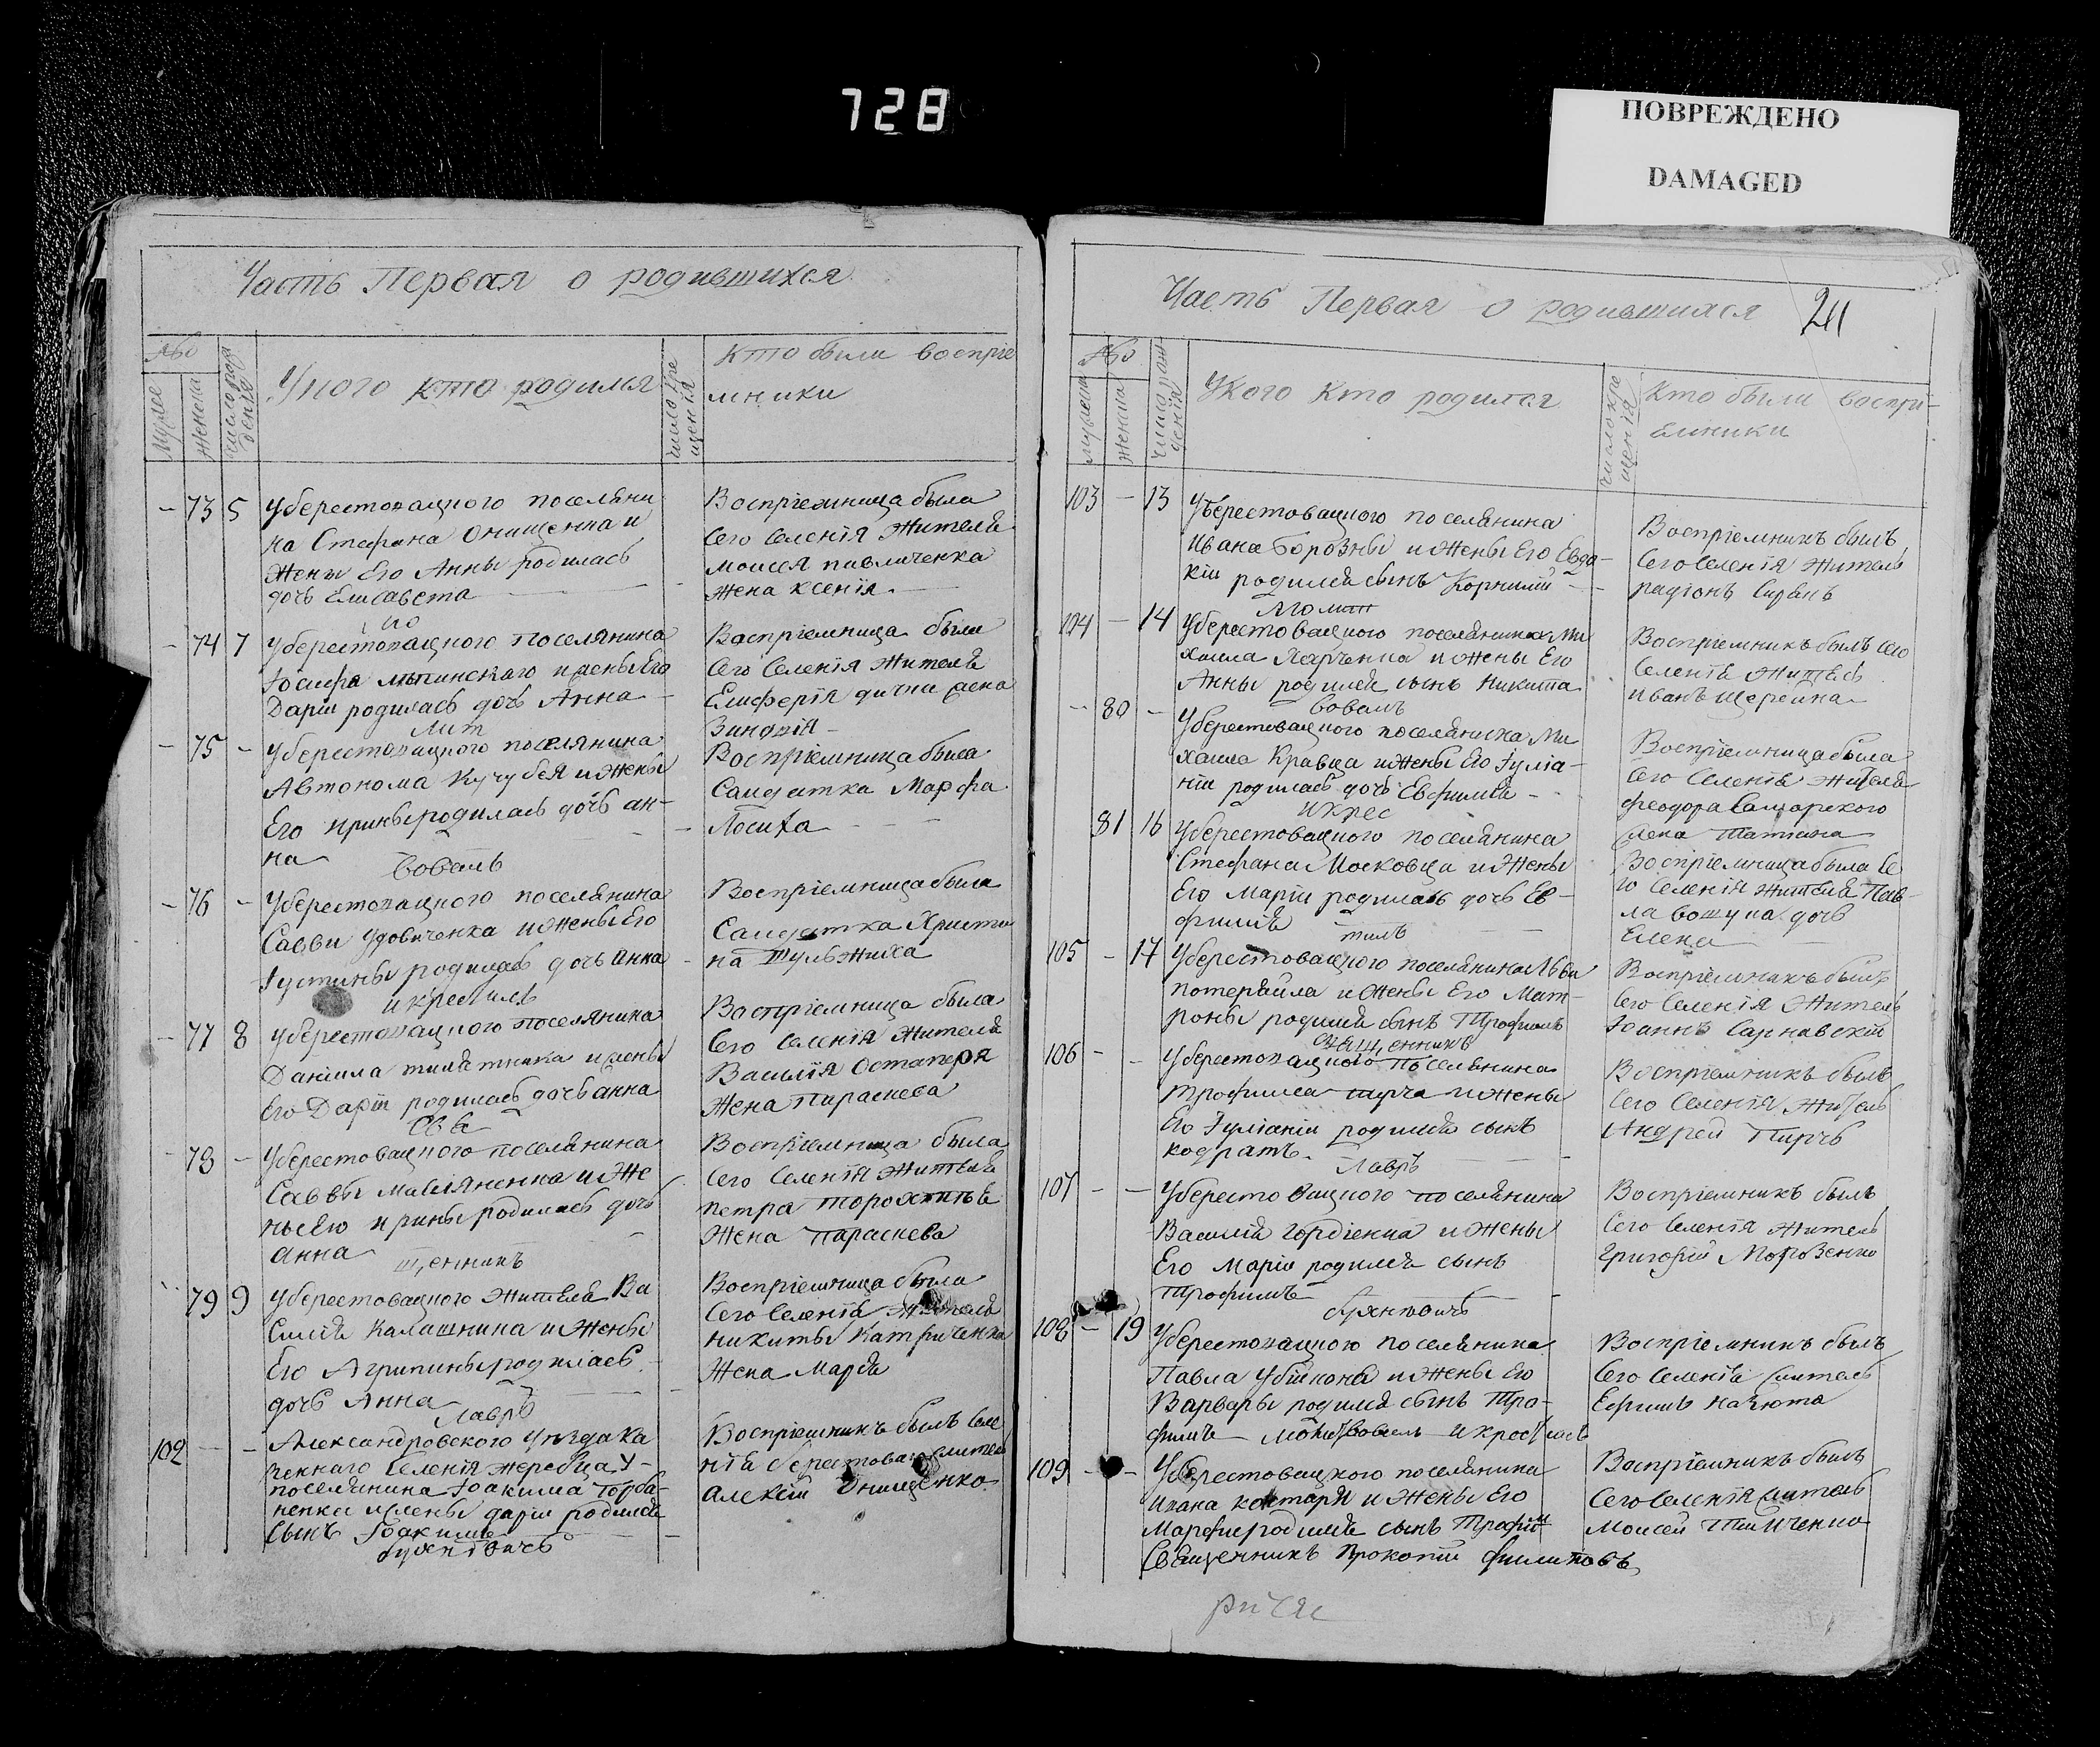 728
ПОВРЕЖДЕНО
DAMAGED
Часть Первая о родившихся
Мужес
женска
число рож
денія
Уного кто родился
число кре
щенія
кто были воспріе
мники
73 5 Уберестовацного поселяни
на Стефана Онищенка и
Жены Его Анны родилась
дочь Елисавета
Воспріемница была
Сего Селенія Жителя
моисея павличенка
жена ксенія
74 7 Уберестовацного Поселянина
Іосифа и жены Его
Даріи родилась дочь Анна
Воспріемница была
Сего Селенія Жителя
75 Уберестовацного поселянина
Автонома Кучубея и Жены
Его ирины родилась дочь ан-
на
Воспріемница была
Салдатка Марфа
Лосиха
вовалъ
76 Уберестовацного поселянина
Савви Удовиченка и Жены Его
Іустины родилась дочь Анна
Воспріемница была
Салдатка Христи
на Шульжиха
и крестилъ
77 8 Уберестовацного поселянина
Даніила и жены
Его Даріи родилась дочь анна
Воспріемница была
Сего Селенія Жителя
Василія Остаперя
Жена Параскева
78 Уберестовацного поселянина
Саввы и Же
ны Его ирины родилась дочь
анна
Воспріемница была
Сего Селенія Жителя
петра
Жена Параскева
щенникъ
79 9 Уберестовацного Жителя Ва
силія Калашника и Жены
Его Агрипины родилась
дочь Анна
Воспріемница была
Сего Селенія Жителя
никиты Катриченка
Жена Марія
Лавръ
102 Александровского Уезда ка
зеннаго Селенія жеребца
поселянина Іоакима Горба-
ненка и жены даріи родился
Сынъ Іоакимъ
Воспріемникъ былъ Селе
нія берестоваго жител
алексій Онищенко
Часть Первая о родившихся
24
мужеска
женска
Число рож
денія
Укого кто родился
число кре
щенія
Кто были воспрі-
емники
103 - 13 Уберестовацного поселянина
Ивана Борозны и Жены Его Евдо-
кіи родился сынъ Корнилій
Воспріемникъ былъ
Сего Селенія Житель
радіонъ
104 - 14 Уберестовацного поселянина Ми
хаила Харченка и Жены Его
Анны родился сынъ Никита
Воспріемникъ былъ сего
Селенія Житель
иванъ
вовалъ
80 - Уберестовацного поселянина Ми
хаила Кравца и Жены Его Іуліа-
ніи родилась дочь Евфимія
Воспріемница была
Сего Селенія Жителя
феодора
жена Татіана
и крес
81 16 Уберестовацного поселянина
Стефана Московца и Жены
Его Маріи родилась дочь Ев-
фимія
Воспріемница была Се
го Селенія Жителя Пав-
ла вошуна дочь
Елена
тилъ
105 - 17 Уберестовацного поселянина Льва
потеряйла и Жены Его Мат-
роны родился сынъ Трофимъ
Воспріемникъ былъ
Сего Селенія Житель
Іоаннъ Сарнавскій
Священникъ
106 - - Уберестовацного поселянина
Трофима и Жены
Его Іуліаніи родился сынъ
кодратъ
Воспріемникъ былъ
Сего Селенія Житель
Андрей Пирчъ
Лавръ
107 - - Уберестовацного поселянина
Василія гордіенка и Жены
Его Маріи родился сынъ
Трофимъ
Воспріемникъ былъ
Сего Селенія Житель
Григорій Морозенко
108 - 19 Уберестовацного поселянина
Павла и Жены Его
Варвары родился сынъ Тро-
фимъ
Воспріемникъ былъ
Сего Селенія житель
Ефимъ
109 - - Уберестовацкого поселянина
Ивана и Жены Его
Марфи родился сынъ Трофим
Воспріемникъ былъ
Сего Селенія житель
Моисей Тимченко
Священникъ Прокопій Филиповъ